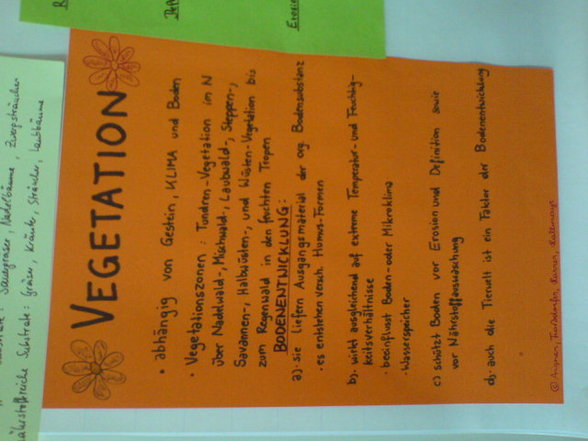 VEGETATION
• abhängig von Gestein, KLIMA und Boden
• Vegetationszonen: Tundren-Vegetation im N
über Nadelwald-, Mischwald-, Laubwald-, Steppen-,
Savannen-, Halbwüsten-, und Wüsten-Vegetation bis
zum Regenwald in den feuchten Tropen
BODENENTWICKLUNG:
a) · sie liefern Ausgangsmaterial der org. Bodensubstanz
· es entstehen versch. Humus-Formen
b) · wirkt ausgleichend auf extreme Temperatur- und Feuchtig-
keitsverhältnisse
· beeinflusst Boden- oder Mikroklima
· Wasserspeicher
c) schützt Boden vor Erosion und Deflation sowie
vor Nährstoffauswaschung
d) · auch die Tierwelt ist ein Faktor der Bodenentwicklung
Sauergräser, Nadelbäume, Zwergsträucher
nährstoffreiche Substrate: Gräser, Kräuter, Sträucher, Laubbäume